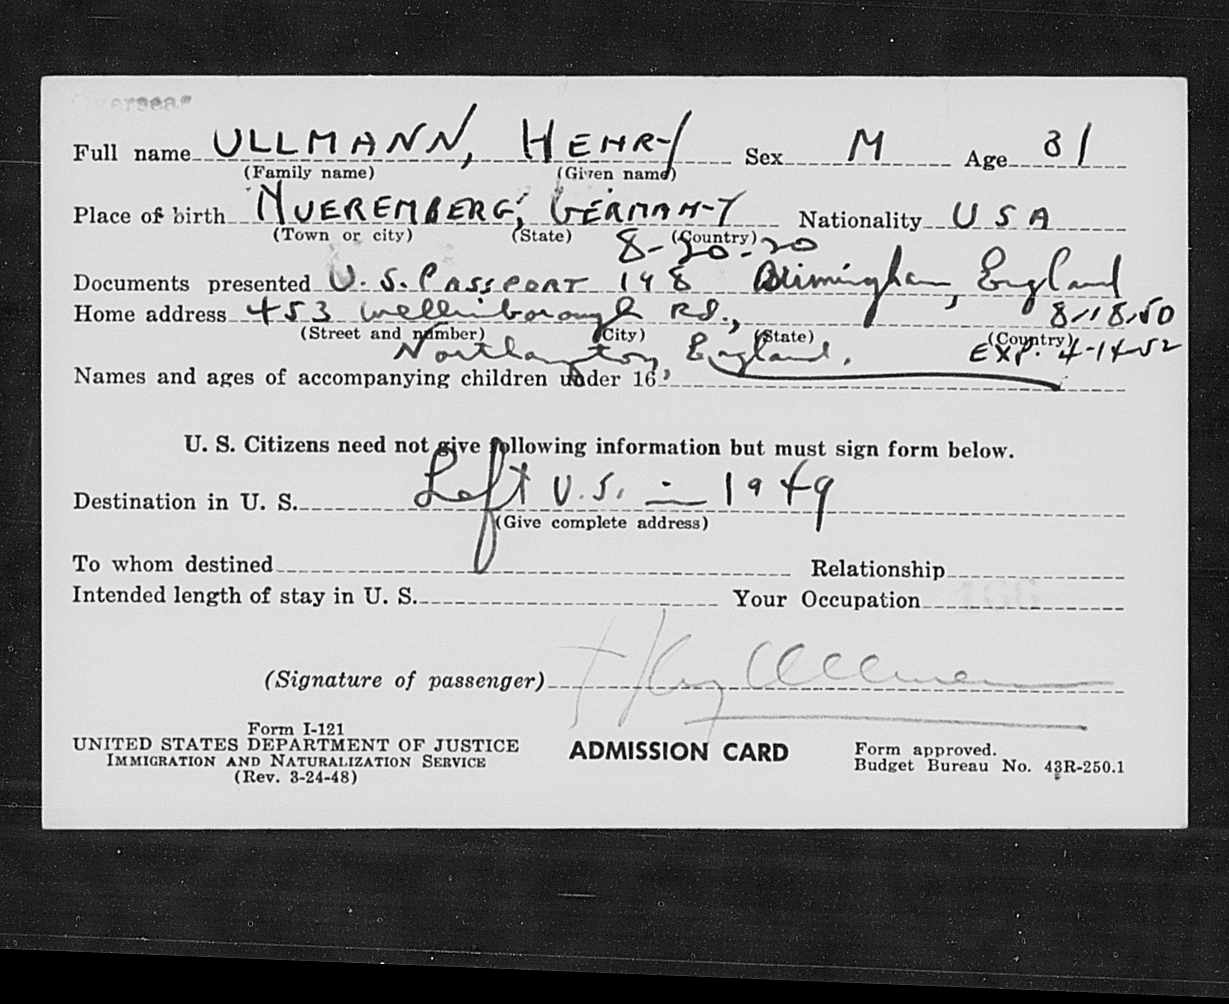 Full name ULLMANN, HENRY Sex M Age 31
(Family name) (Given name)
Place of birth NUEREMBERG, GERMANY Nationality USA
(Town or city) (State) (Country)
8-20-20
Documents presented U.S. PASSPORT 148 Birmingham, England
Home address 453 Wellinborough Rd., 8-18-50
(Street and number) (City) (State) (Country)
Northampton, England. EXP. 4-14-52
Names and ages of accompanying children under 16
U. S. Citizens need not give following information but must sign form below.
Left U.S. in 1949
Destination in U. S.
(Give complete address)
To whom destined Relationship
Intended length of stay in U. S. Your Occupation
(Signature of passenger) Henry Ullmann
Form I-121
UNITED STATES DEPARTMENT OF JUSTICE
IMMIGRATION AND NATURALIZATION SERVICE
(Rev. 3-24-48)
ADMISSION CARD
Form approved.
Budget Bureau No. 43R-250.1